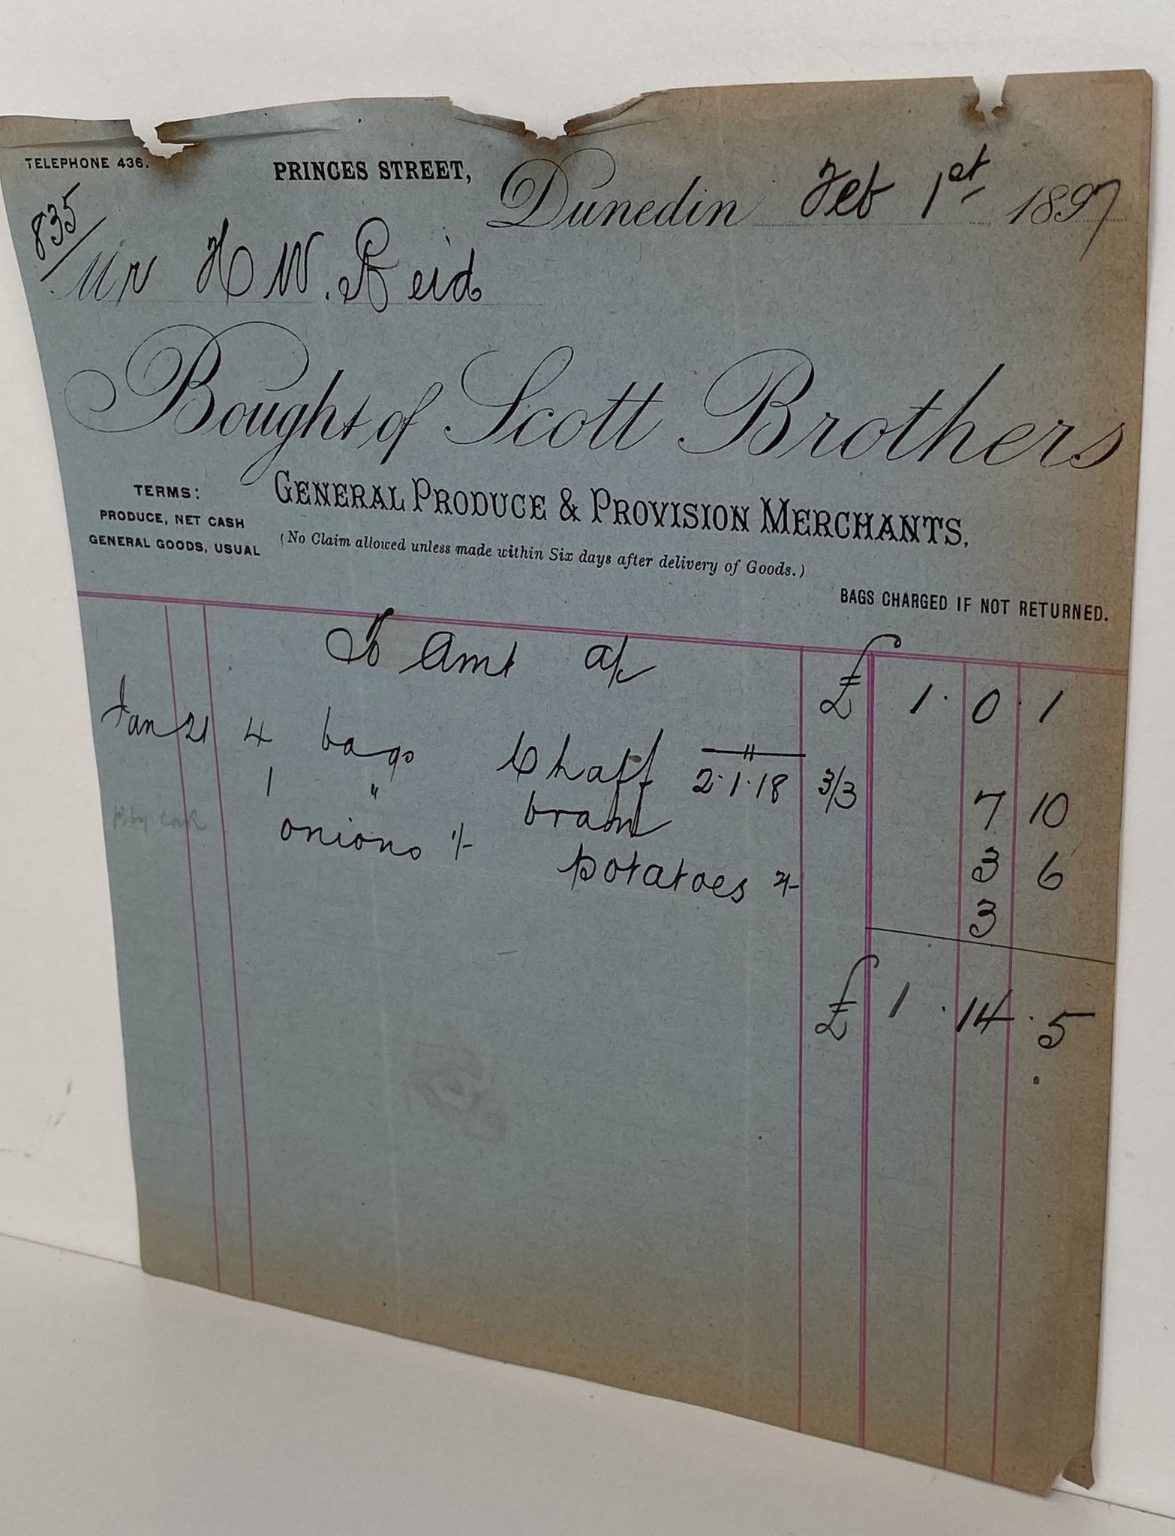 TELEPHONE 436.
PRINCES STREET, Dunedin Feb 1st 1897
835/
Mr H W. Reid
Bought of Scott Brothers
GENERAL PRODUCE & PROVISION MERCHANTS,
TERMS:
PRODUCE, NET CASH
GENERAL GOODS, USUAL
(No Claim allowed unless made within Six days after delivery of Goods.)
BAGS CHARGED IF NOT RETURNED.
To Amt a/c £ 1. 0. 1
Jan 21 4 bags Chaff 2.1.18 3/3 7 10
1 " bran 3 6
onions 1/- potatoes 2/- 3
£ 1. 14. 5